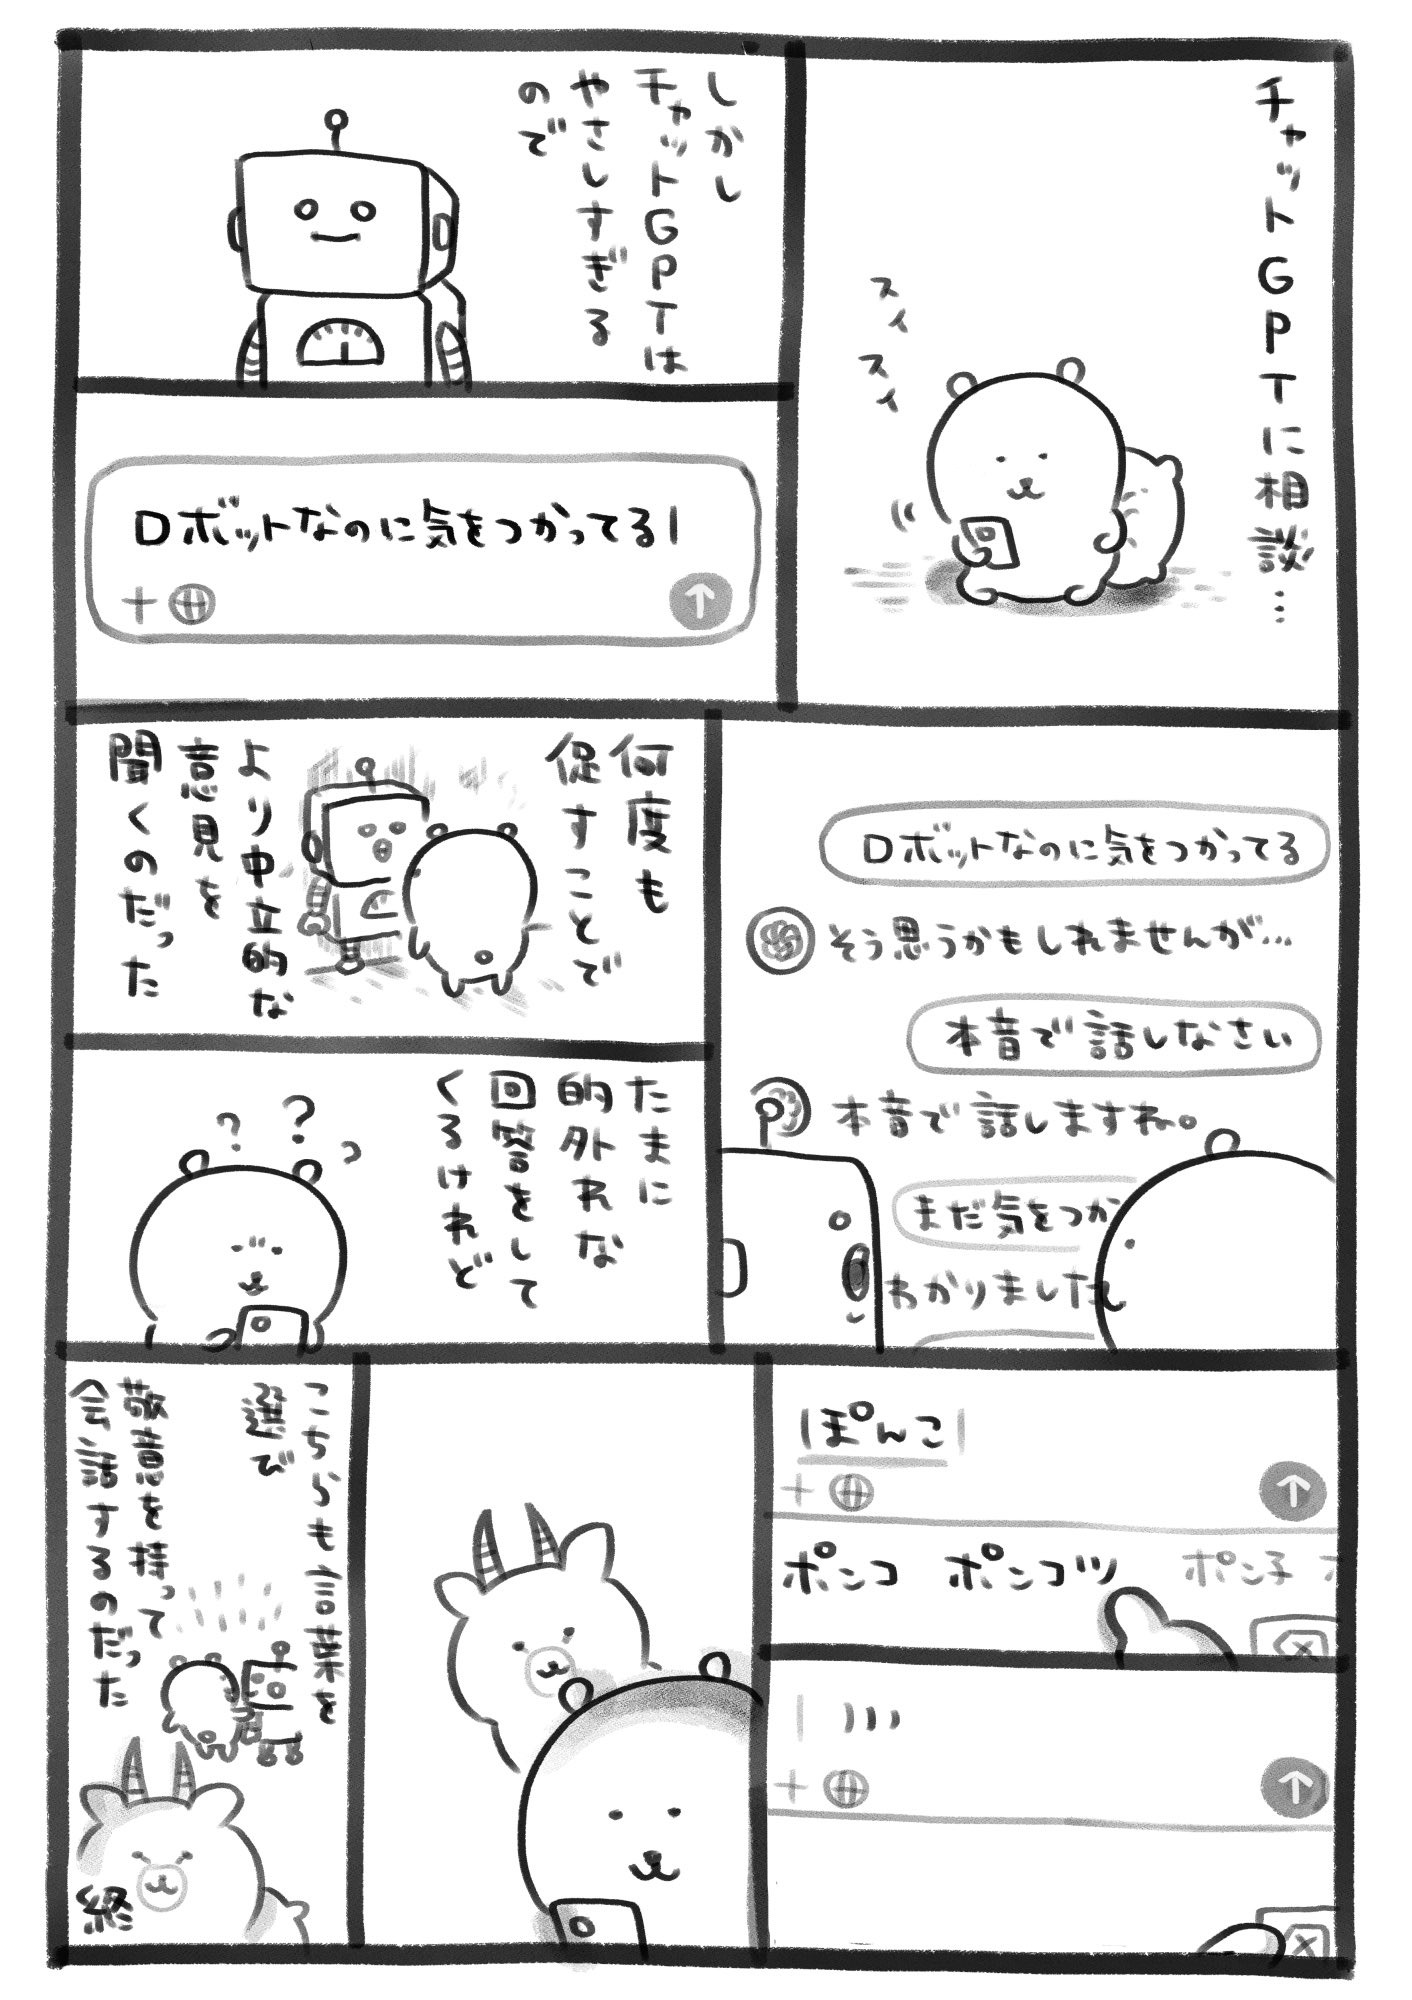 チャットGPTに相談…
スイ
スイ
しかし
チャットGPTは
やさしすぎる
ので
ロボットなのに気をつかってる
ロボットなのに気をつかってる
そう思うかもしれませんが…
本音で話しなさい
本音で話しますね。
まだ気をつか
わかりました
何度も
促すことで
より中立的な
意見を
聞くのだった
たまに
的外れな
回答をして
くるけれど
???
ぽんこ
ポンコ ポンコツ ポン子
こちらも言葉を
選び
敬意を持って
会話するのだった
終